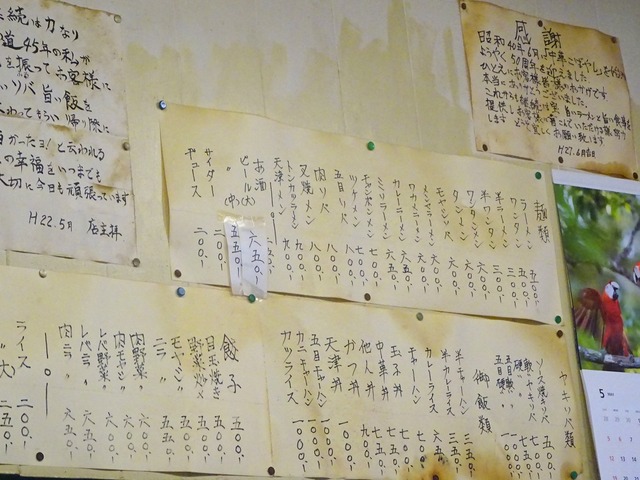 感謝
昭和40年6月に中華
ようやく50周年を迎えました
ひとえにお客様皆様のおかげです
本当にありがとうございました。
これからも体の続く限り旨いラーメンと旨い食事を
します どうぞ宜しくお願い致します
H27.6月吉日
続は力なり
道45年の私が
を振ってお客様に
いソバ旨い飯を
わってもらい帰り際に
かったヨ!と云われる
の幸福をいつまでも
大切に今日も頑張っています
H22.5月 店主拝
麺類
ラーメン 五〇〇
ワンタン 五〇〇
半ラーメン 三〇〇
半ワンタン 三〇〇
ワンタンメン 六〇〇
タンメン 六〇〇
モヤシソバ 六〇〇
メンマラーメン 六〇〇
ワカメラーメン 六五〇
カレーラーメン 六五〇
ミソラーメン 七〇〇
チャンポンメン 八〇〇
ツケメン 七〇〇
五目ソバ 八〇〇
肉ソバ 八〇〇
叉焼メン 九〇〇
トンカツラーメン 九〇〇
天津メン
お酒 二五〇
ビール(大) 六五〇
〃(中) 五五〇
サイダー 二〇〇
ヂュース 二〇〇
ヤキソバ類
ソース焼ソバ 五〇〇
軟ヤキソバ
硬〃
五目軟〃
五目硬〃
御飯類
半チャーハン 三五〇
半カレーライス 三五〇
カレーライス 六五〇
チャーハン
玉子丼 七〇〇
中華丼 七五〇
他人丼 七五〇
カツ丼 九〇〇
天津丼 一〇〇〇
五目チャーハン 一〇〇〇
カニチャーハン 一〇〇〇
カツライス 一〇〇〇
餃子 五〇〇
目玉焼き 五五〇
野菜炒× 五五〇
モヤシ〃 五五〇
ニラ〃 五五〇
肉野菜〃 六〇〇
肉モヤシ〃 六〇〇
レバ野菜〃 六〇〇
レバニラ〃 六五〇
肉ニラ〃 六五〇
ライス 二〇〇
〃(大) 二五〇
5